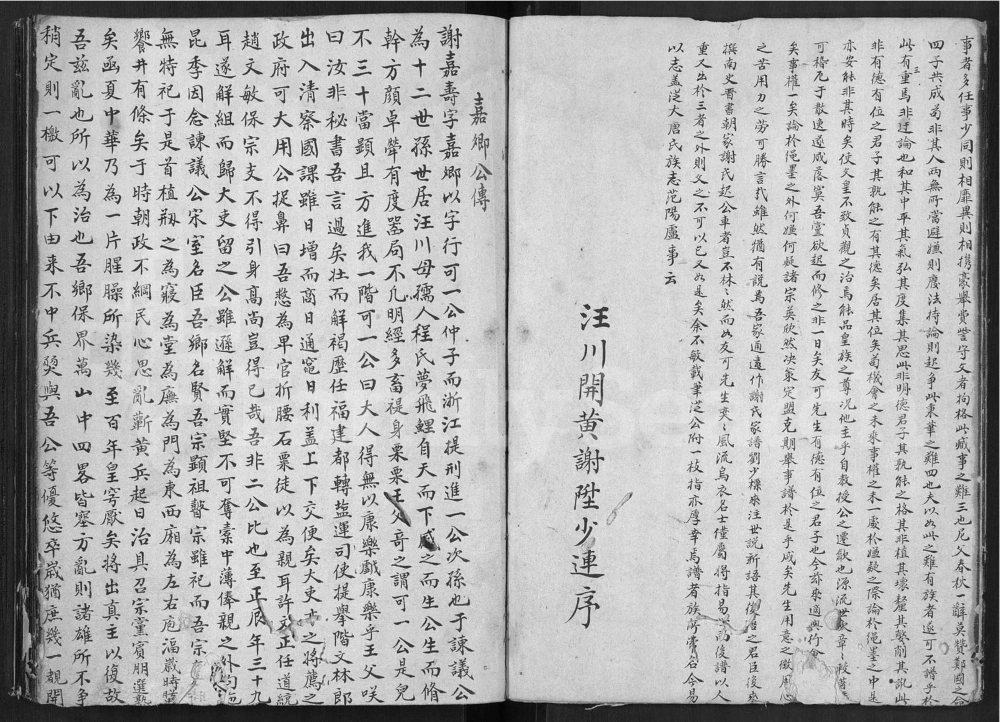 事者多任事少同則相靡異則相攜豪舉費訾守文者拘格此藏事之難三也尼父春秋一辭莫贊鄭國之命
四子共成苟非其人兩無所當避嫌則廢法持論則起爭此東華之難四也夫以如此之難有族者遂可不譜乎於
此有重焉非迂論也和其中平其氣弘其度集其思此非明德君子其孰能之格其非植其壞釐其繁削其訛此
非有德有位之君子其孰能之有其德矣居其位矣苟機會之未來事權之未一處於嫌疑之際論於繩墨之中是
亦安能非其時矣使文皇不致貞觀之治焉能品皇族之尊況他主乎自教授公之還歙也源流世廢章
可稽厄于散逸遂成落寞吾黨欲起而修之非一日矣友可先生有德有位之君子也今茲來適與行會
矣事權一矣論於繩墨之外何嫌何疑諸宗英欣然決策定盟克期舉事譜於是乎成矣先生用意之微用心
之苦用力之勞可勝言哉雖然猶有說焉吾家通遠作謝氏家譜劉少標來注世說新語其復世之君臣後來
撰南史晉書朝家謝氏起公車者豈不林林然而如友可先生奕奕風流烏衣名士僅屬得指易世而後譜以人
重又出於三者之外則又之不可以已又如是矣余不敏載筆從公附一枝指亦厚幸焉譜者族所當名今易
以志蓋從大唐氏族志范陽盧事云
汪川開黃謝陞少連序
嘉鄉公傳
謝嘉壽字嘉鄉以字行可一公仲子而浙江提刑進一公次孫也于諫議公
為十二世孫世居汪川母孺人程氏夢飛鯉自天而下感之而生公生而脩
幹方顏卓犖有度器局不凡明經多畜禔身栗栗王父奇之謂可一公是兒
不三十當顯且方進我一階可一公曰大人得無以康樂戲康樂乎王父咲
曰汝非秘書吾言過矣壯而解褐歷任福建都轉塩運司使提舉階文林郎
出入清察國課雖日增而商日通竈日利蓋上下交便矣大吏才之將薦之
政府可大用公捉鼻曰吾憗為早官折腰石粟徒以為親耳許文正任道統
趙文敏保宗支不得引身高尚豈得已哉吾非二公比也至正辰年三十九
耳遂解組而歸大吏留之公雖遜解而實堅不可奪橐中薄俸親之外均
昆季因念諫議公宋室名臣吾鄉名賢吾宗顯祖瞖宗雖祀而吾宗
無特祀于是首植剏之為寢為堂為廡為門為東西廂為左右庖湢歲時
饗井有條矣于時朝政不綱民心思亂蘄黃兵起日治具召宗黨賓朋選
矣函夏中華乃為一片腥臊所染幾至百年皇穷厭矣將出真主以復故
吾茲亂也所以為治也吾鄉保界萬山中四畧皆塞方亂則諸雄所不爭
稍定則一檄可以下由来不中兵燹與吾公等優悠卒歲猶庶幾一覩開